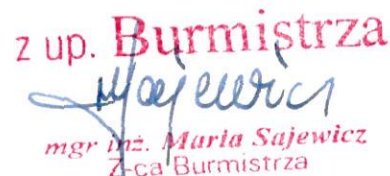 z up. Burmistrza
Sajewicz
mgr inż. Maria Sajewicz
Z-ca Burmistrza